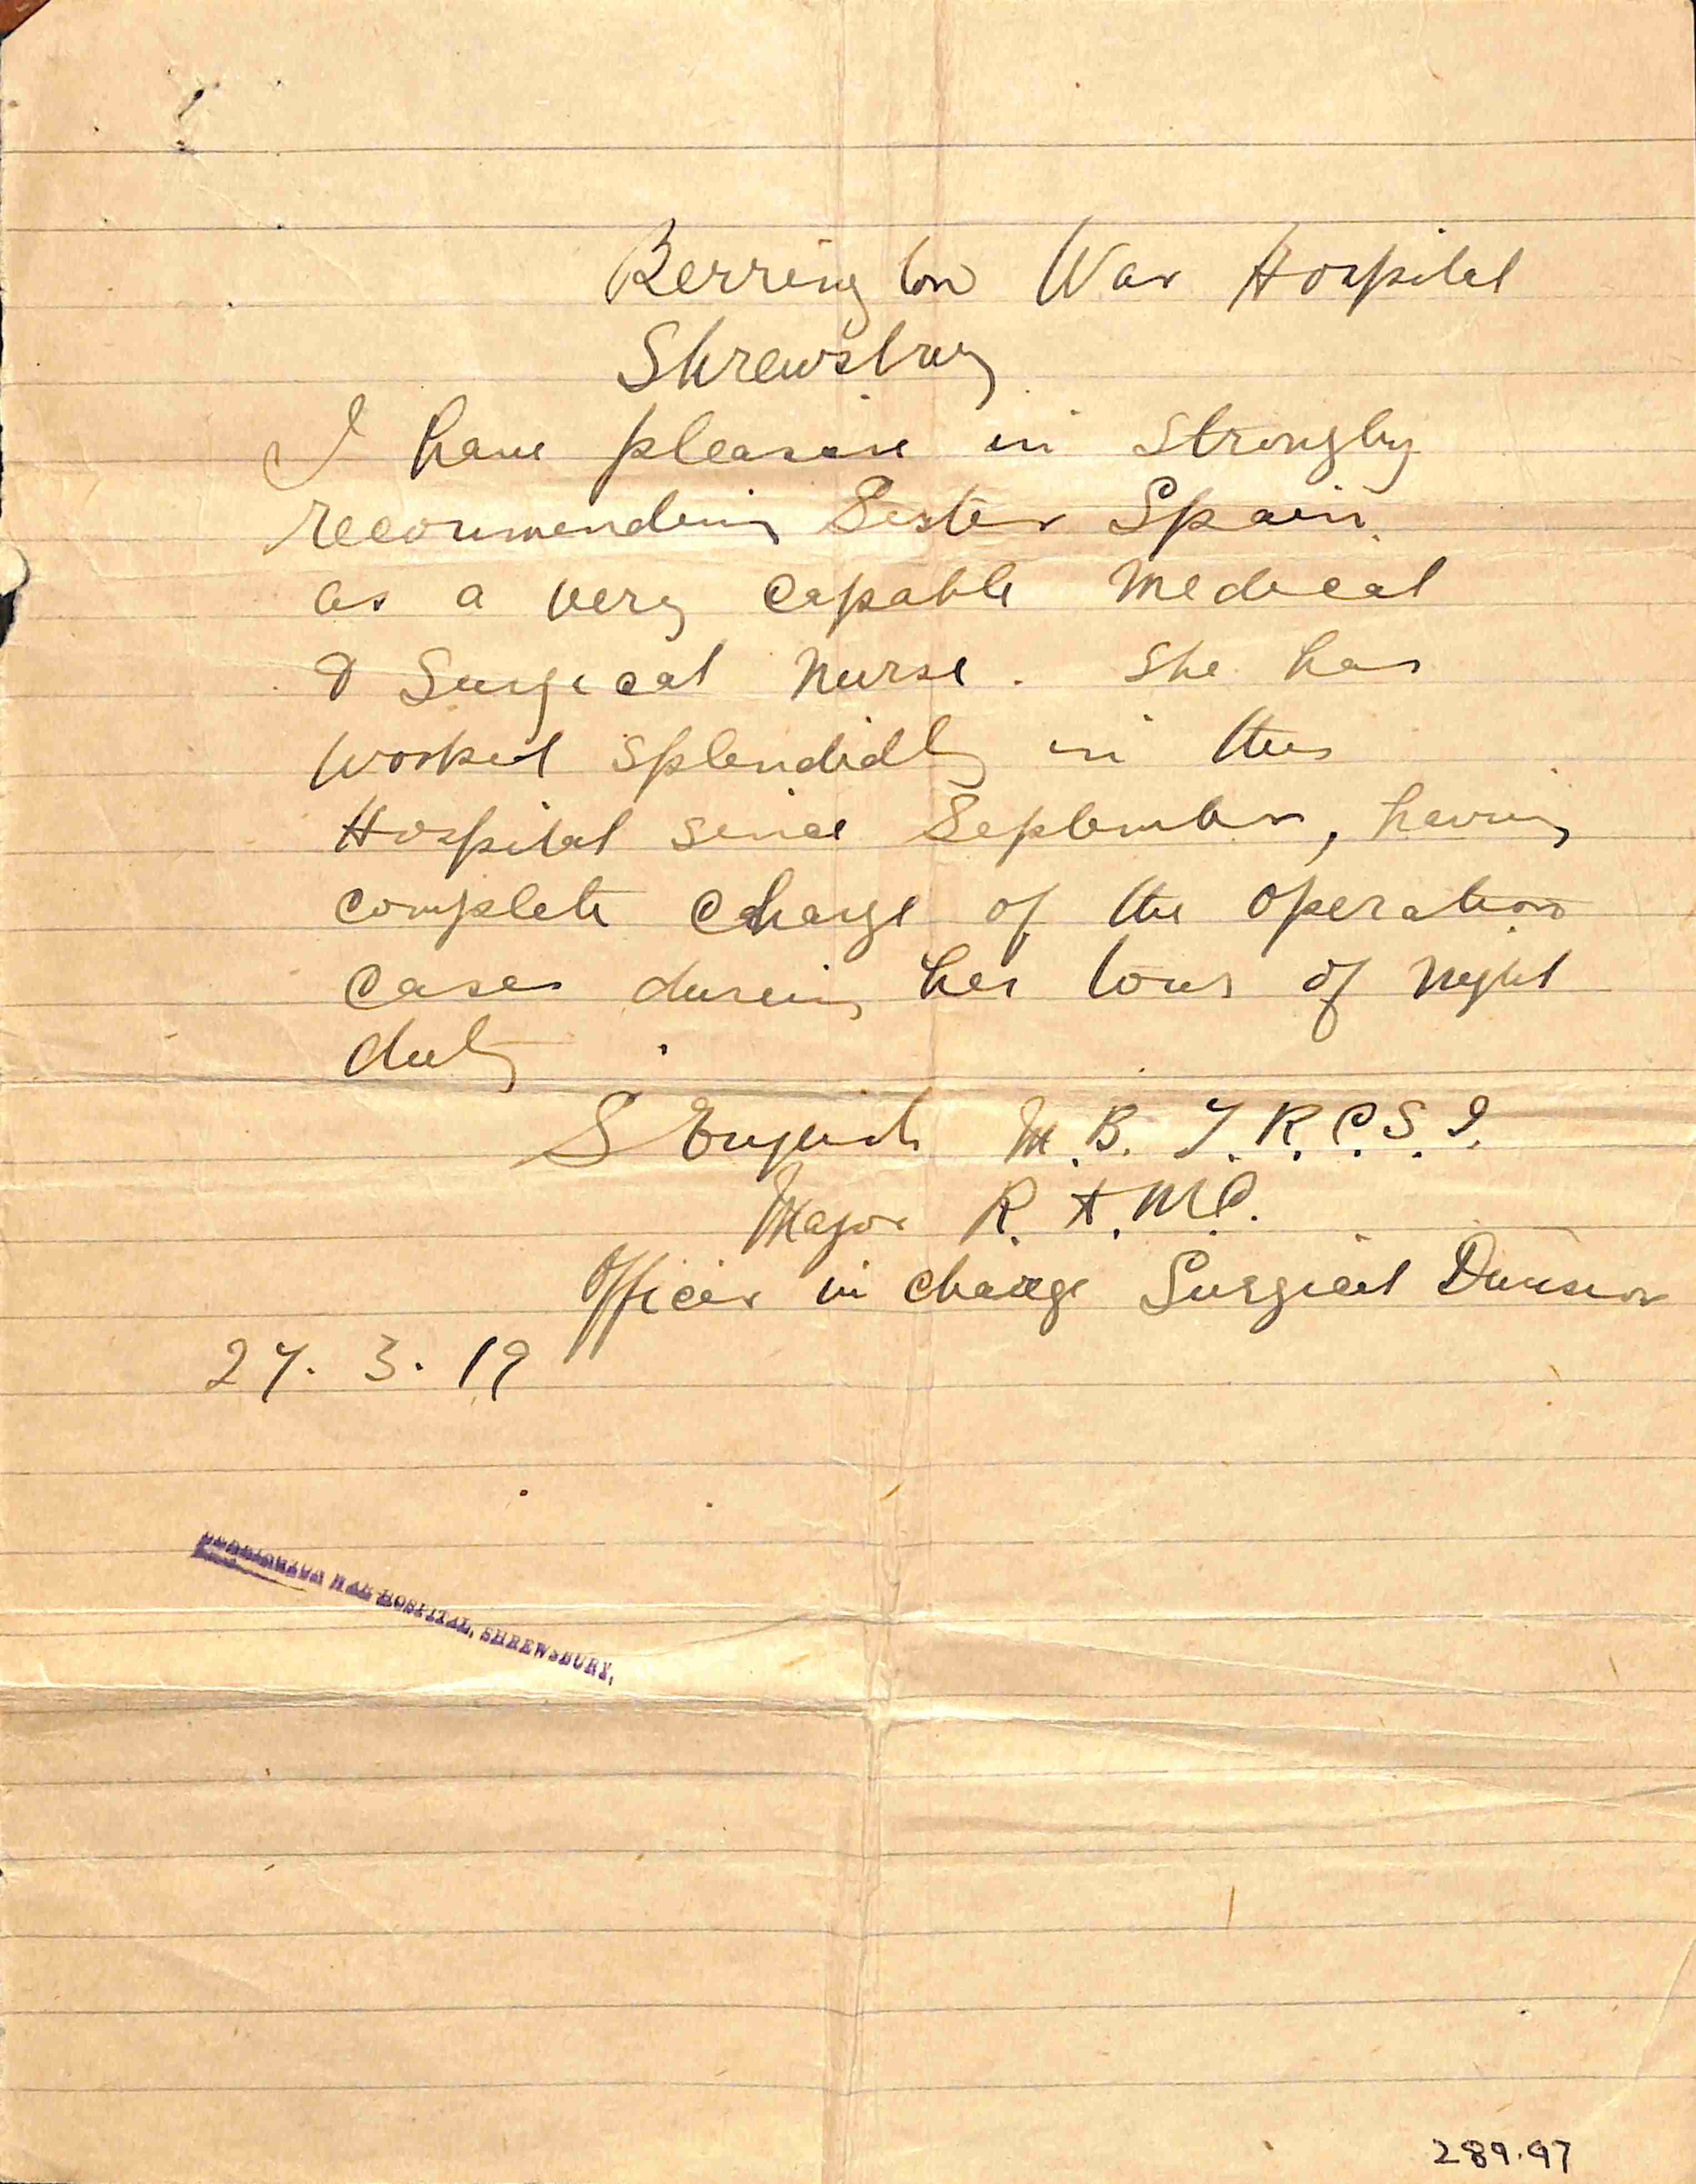 Berrington War Hospital
Shrewsbury
I have pleasure in strongly
recommending Sister Spain
as a very capable Medical
& Surgical Nurse. She has
worked splendidly in this
Hospital since September, having
complete charge of the operation
cases during her tour of night
duty.
S English M.B. F.R.C.S.I.
Major R.A.M.C.
Officer in charge Surgical Division
27.3.19
BERRINGTON WAR HOSPITAL, SHREWSBURY.
289.97